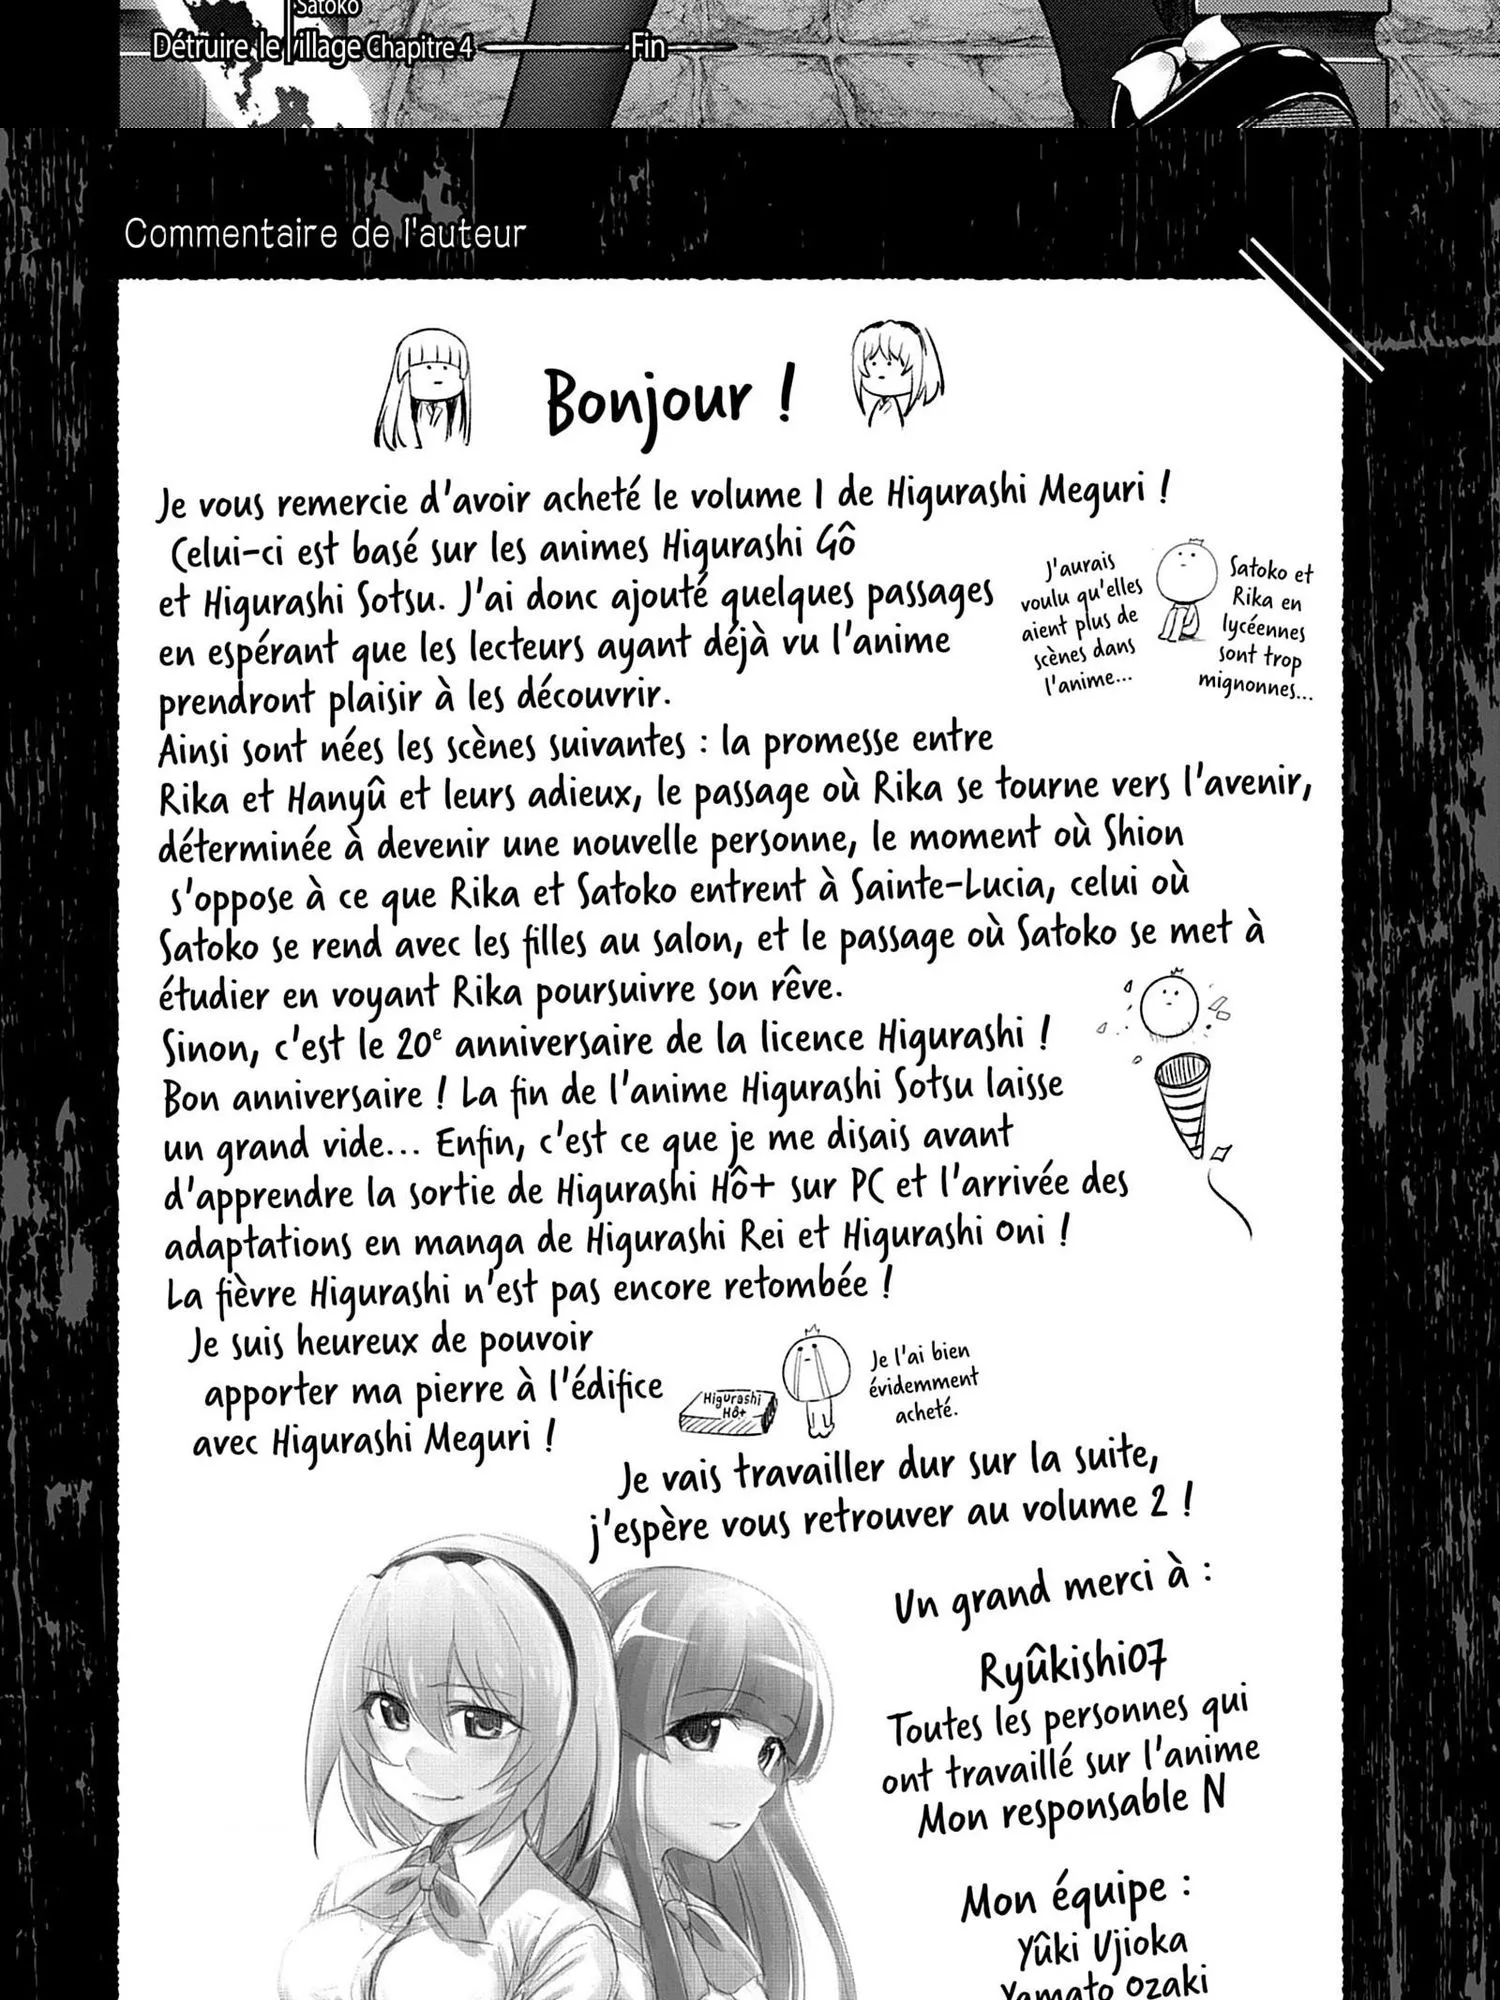 Satoko
Détruire le village Chapitre 4 Fin
Commentaire de l'auteur
Bonjour !
Je vous remercie d'avoir acheté le volume 1 de Higurashi Meguri !
Celui-ci est basé sur les animes Higurashi Gô
et Higurashi Sotsu. J'ai donc ajouté quelques passages
en espérant que les lecteurs ayant déjà vu l'anime
prendront plaisir à les découvrir.
J'aurais
voulu qu'elles
aient plus de
scènes dans
l'anime...
Satoko et
Rika en
lycéennes
sont trop
mignonnes...
Ainsi sont nées les scènes suivantes : la promesse entre
Rika et Hanyû et leurs adieux, le passage où Rika se tourne vers l'avenir,
déterminée à devenir une nouvelle personne, le moment où Shion
s'oppose à ce que Rika et Satoko entrent à Sainte-Lucia, celui où
Satoko se rend avec les filles au salon, et le passage où Satoko se met à
étudier en voyant Rika poursuivre son rêve.
Sinon, c'est le 20e anniversaire de la licence Higurashi !
Bon anniversaire ! La fin de l'anime Higurashi Sotsu laisse
un grand vide... Enfin, c'est ce que je me disais avant
d'apprendre la sortie de Higurashi Hô+ sur PC et l'arrivée des
adaptations en manga de Higurashi Rei et Higurashi Oni !
La fièvre Higurashi n'est pas encore retombée !
Je suis heureux de pouvoir
apporter ma pierre à l'édifice
avec Higurashi Meguri !
Higurashi
Hô+
Je l'ai bien
évidemment
acheté.
Je vais travailler dur sur la suite,
j'espère vous retrouver au volume 2 !
Un grand merci à :
Ryûkishi07
Toutes les personnes qui
ont travaillé sur l'anime
Mon responsable N
Mon équipe :
Yûki Ujioka
Yamato Ozaki